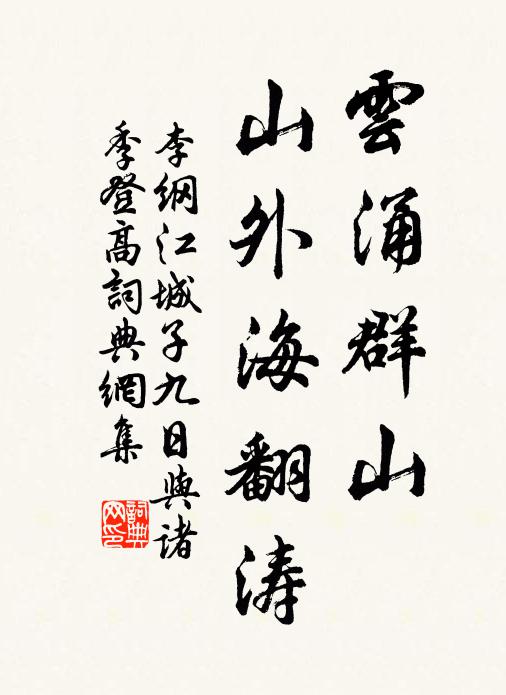 雲涌群山
山外海翻涛
李纲江城子九日與諸
季登高詞典網集
詞典
网印